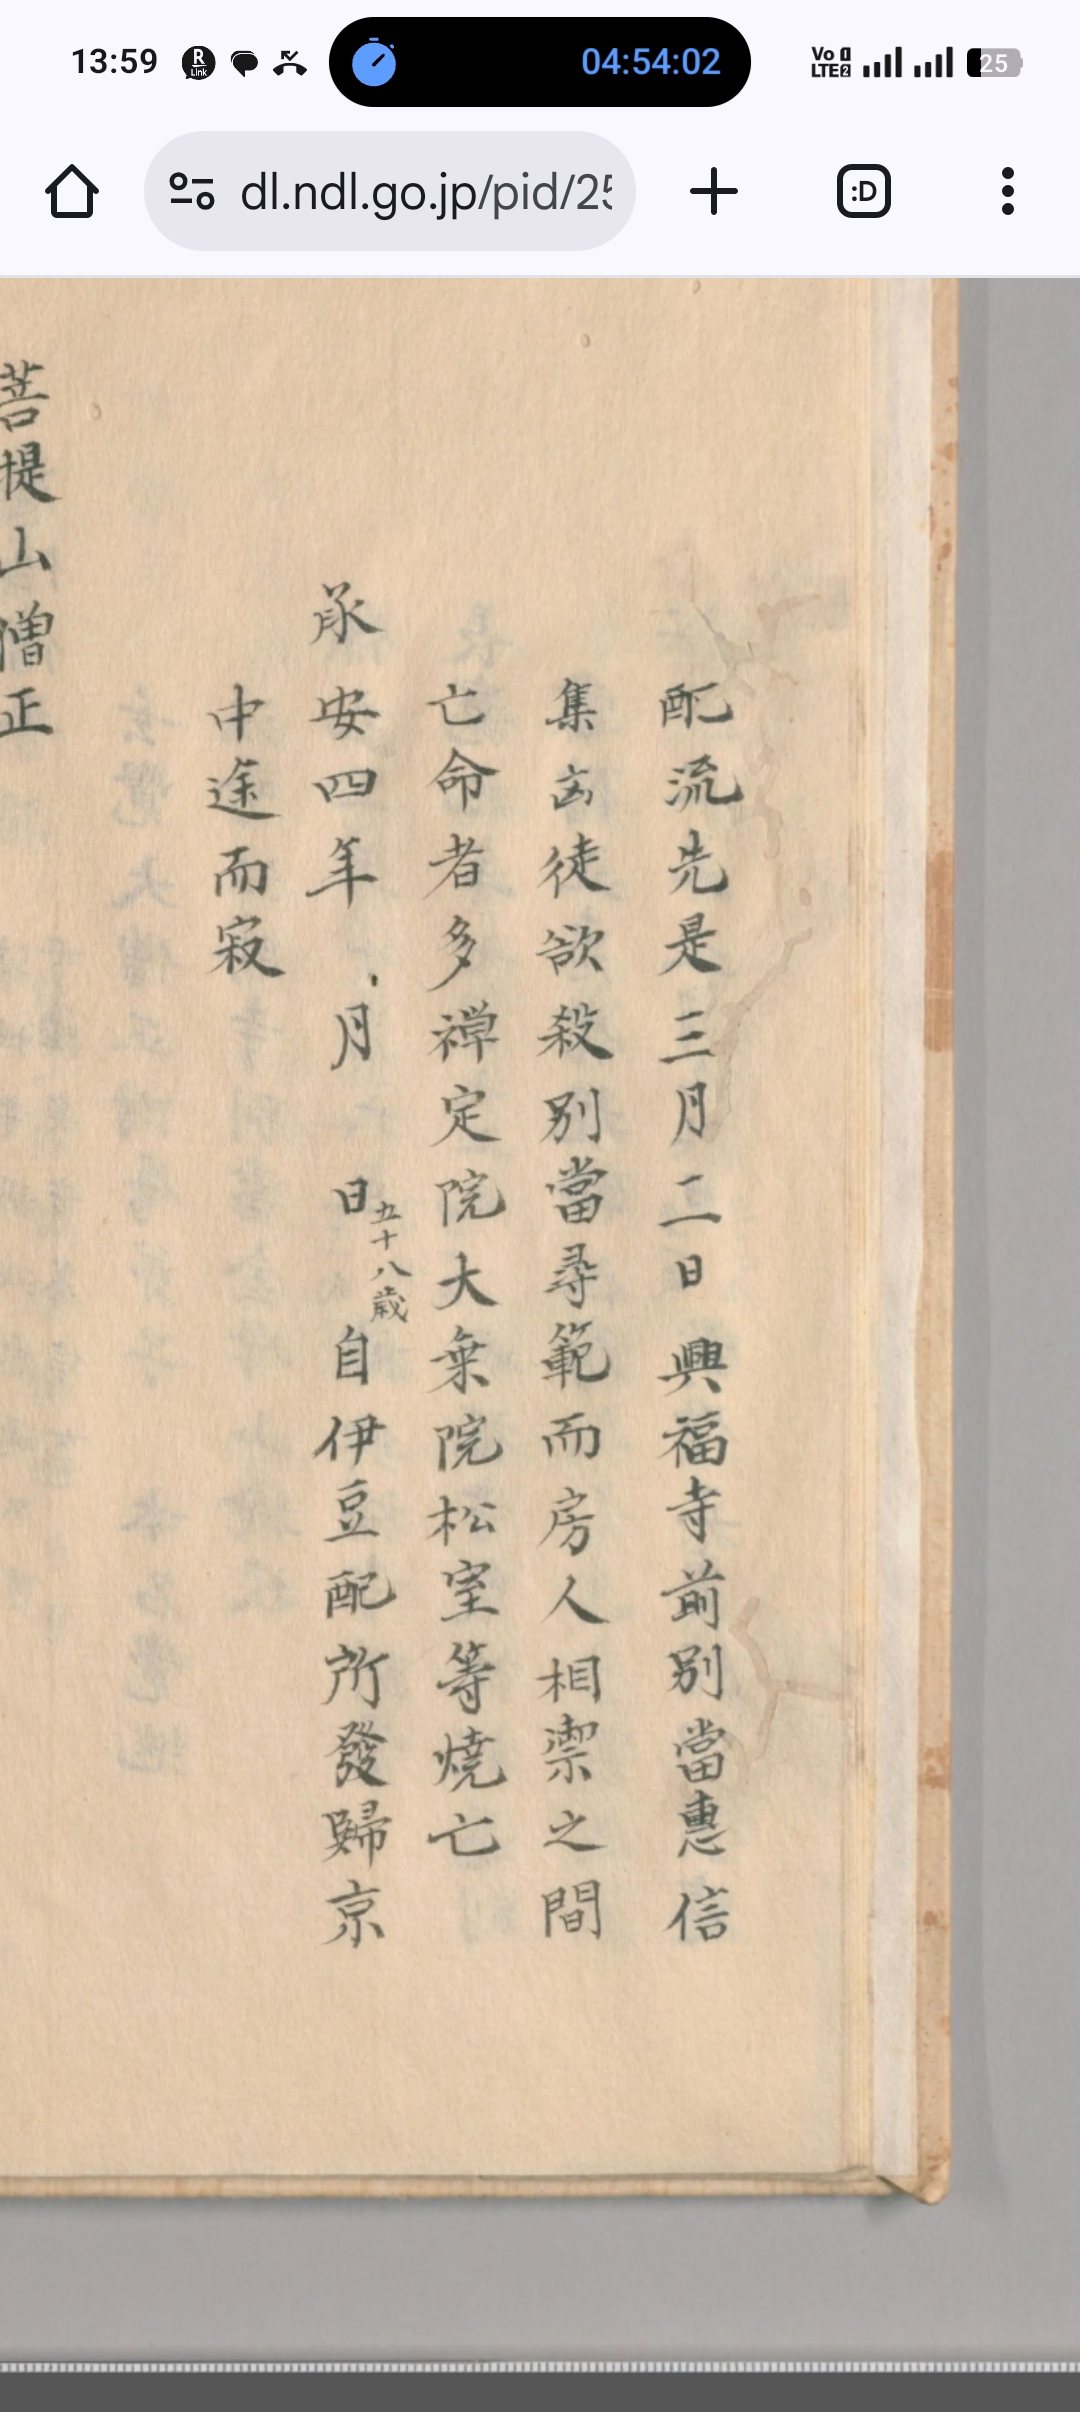 13:59
04:54:02
Vo
LTE2
25
dl.ndl.go.jp/pid/25
:D
配流先是三月二日興福寺前別當惠信
集凶徒欲殺別當尋範而房人相禦之間
亡命者多禅定院大乗院松室等燒亡
承安四年 月 日五十八歳自伊豆配所發歸京
中途而寂
菩提山僧正